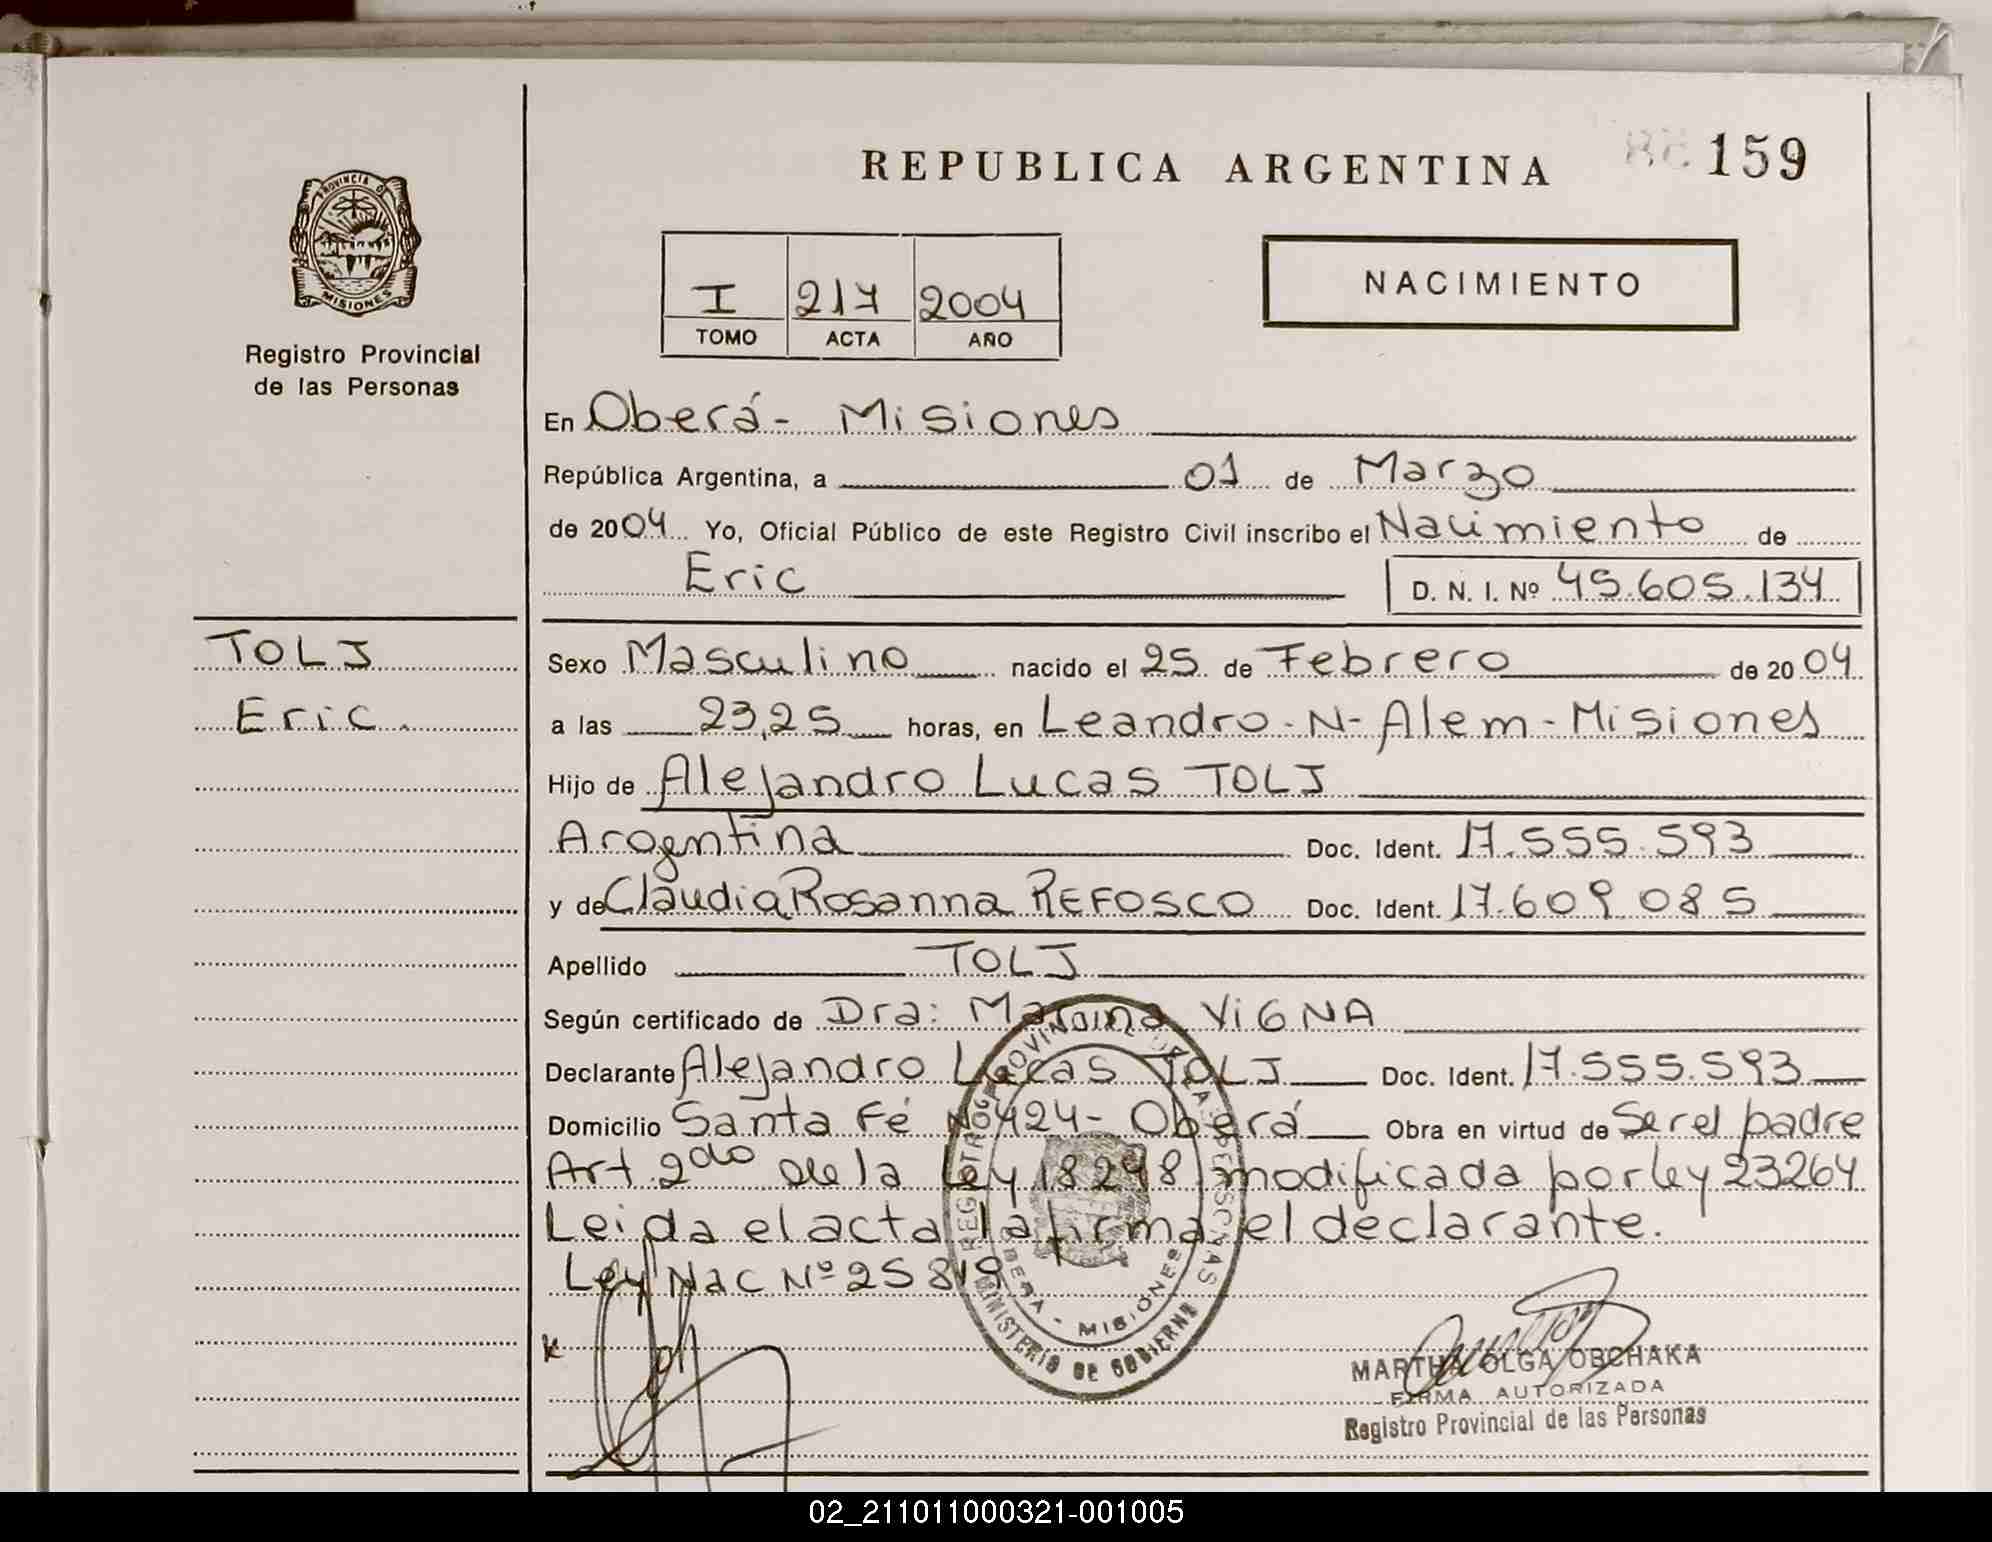 REPUBLICA ARGENTINA
159
PROVINCIA DE
MISIONES
Registro Provincial
de las Personas
I 217 2004
TOMO ACTA AÑO
NACIMIENTO
En Oberá- Misiones
República Argentina, a 01 de Marzo
de 2004 Yo, Oficial Público de este Registro Civil inscribo el Nacimiento de
Eric D. N. I. Nº 45.605.134
TOLJ
Eric.
Sexo Masculino nacido el 25 de Febrero de 2004
a las 23,25 horas, en Leandro-N-Alem-Misiones
Hijo de Alejandro Lucas TOLJ
Argentina Doc. Ident. 17.555.593
y de Claudia Rosanna REFOSCO Doc. Ident. 17.609.085
Apellido TOLJ
Según certificado de Dra: Marina VIGNA
Declarante Alejandro Lucas TOLJ Doc. Ident. 17.555.593
Domicilio Santa Fé Nº424- Oberá Obra en virtud de Ser el padre
Art. 2do de la Ley 18248 modificada por ley 23264
Leida el acta la firma el declarante.
Ley Nac Nº 25819
REGISTRO PROVINCIAL DE LAS PERSONAS
OBERA - MISIONES
MINISTERIO DE GOBIERNO
MARTHA OLGA OBCHAKA
FIRMA AUTORIZADA
Registro Provincial de las Personas
02_211011000321-001005